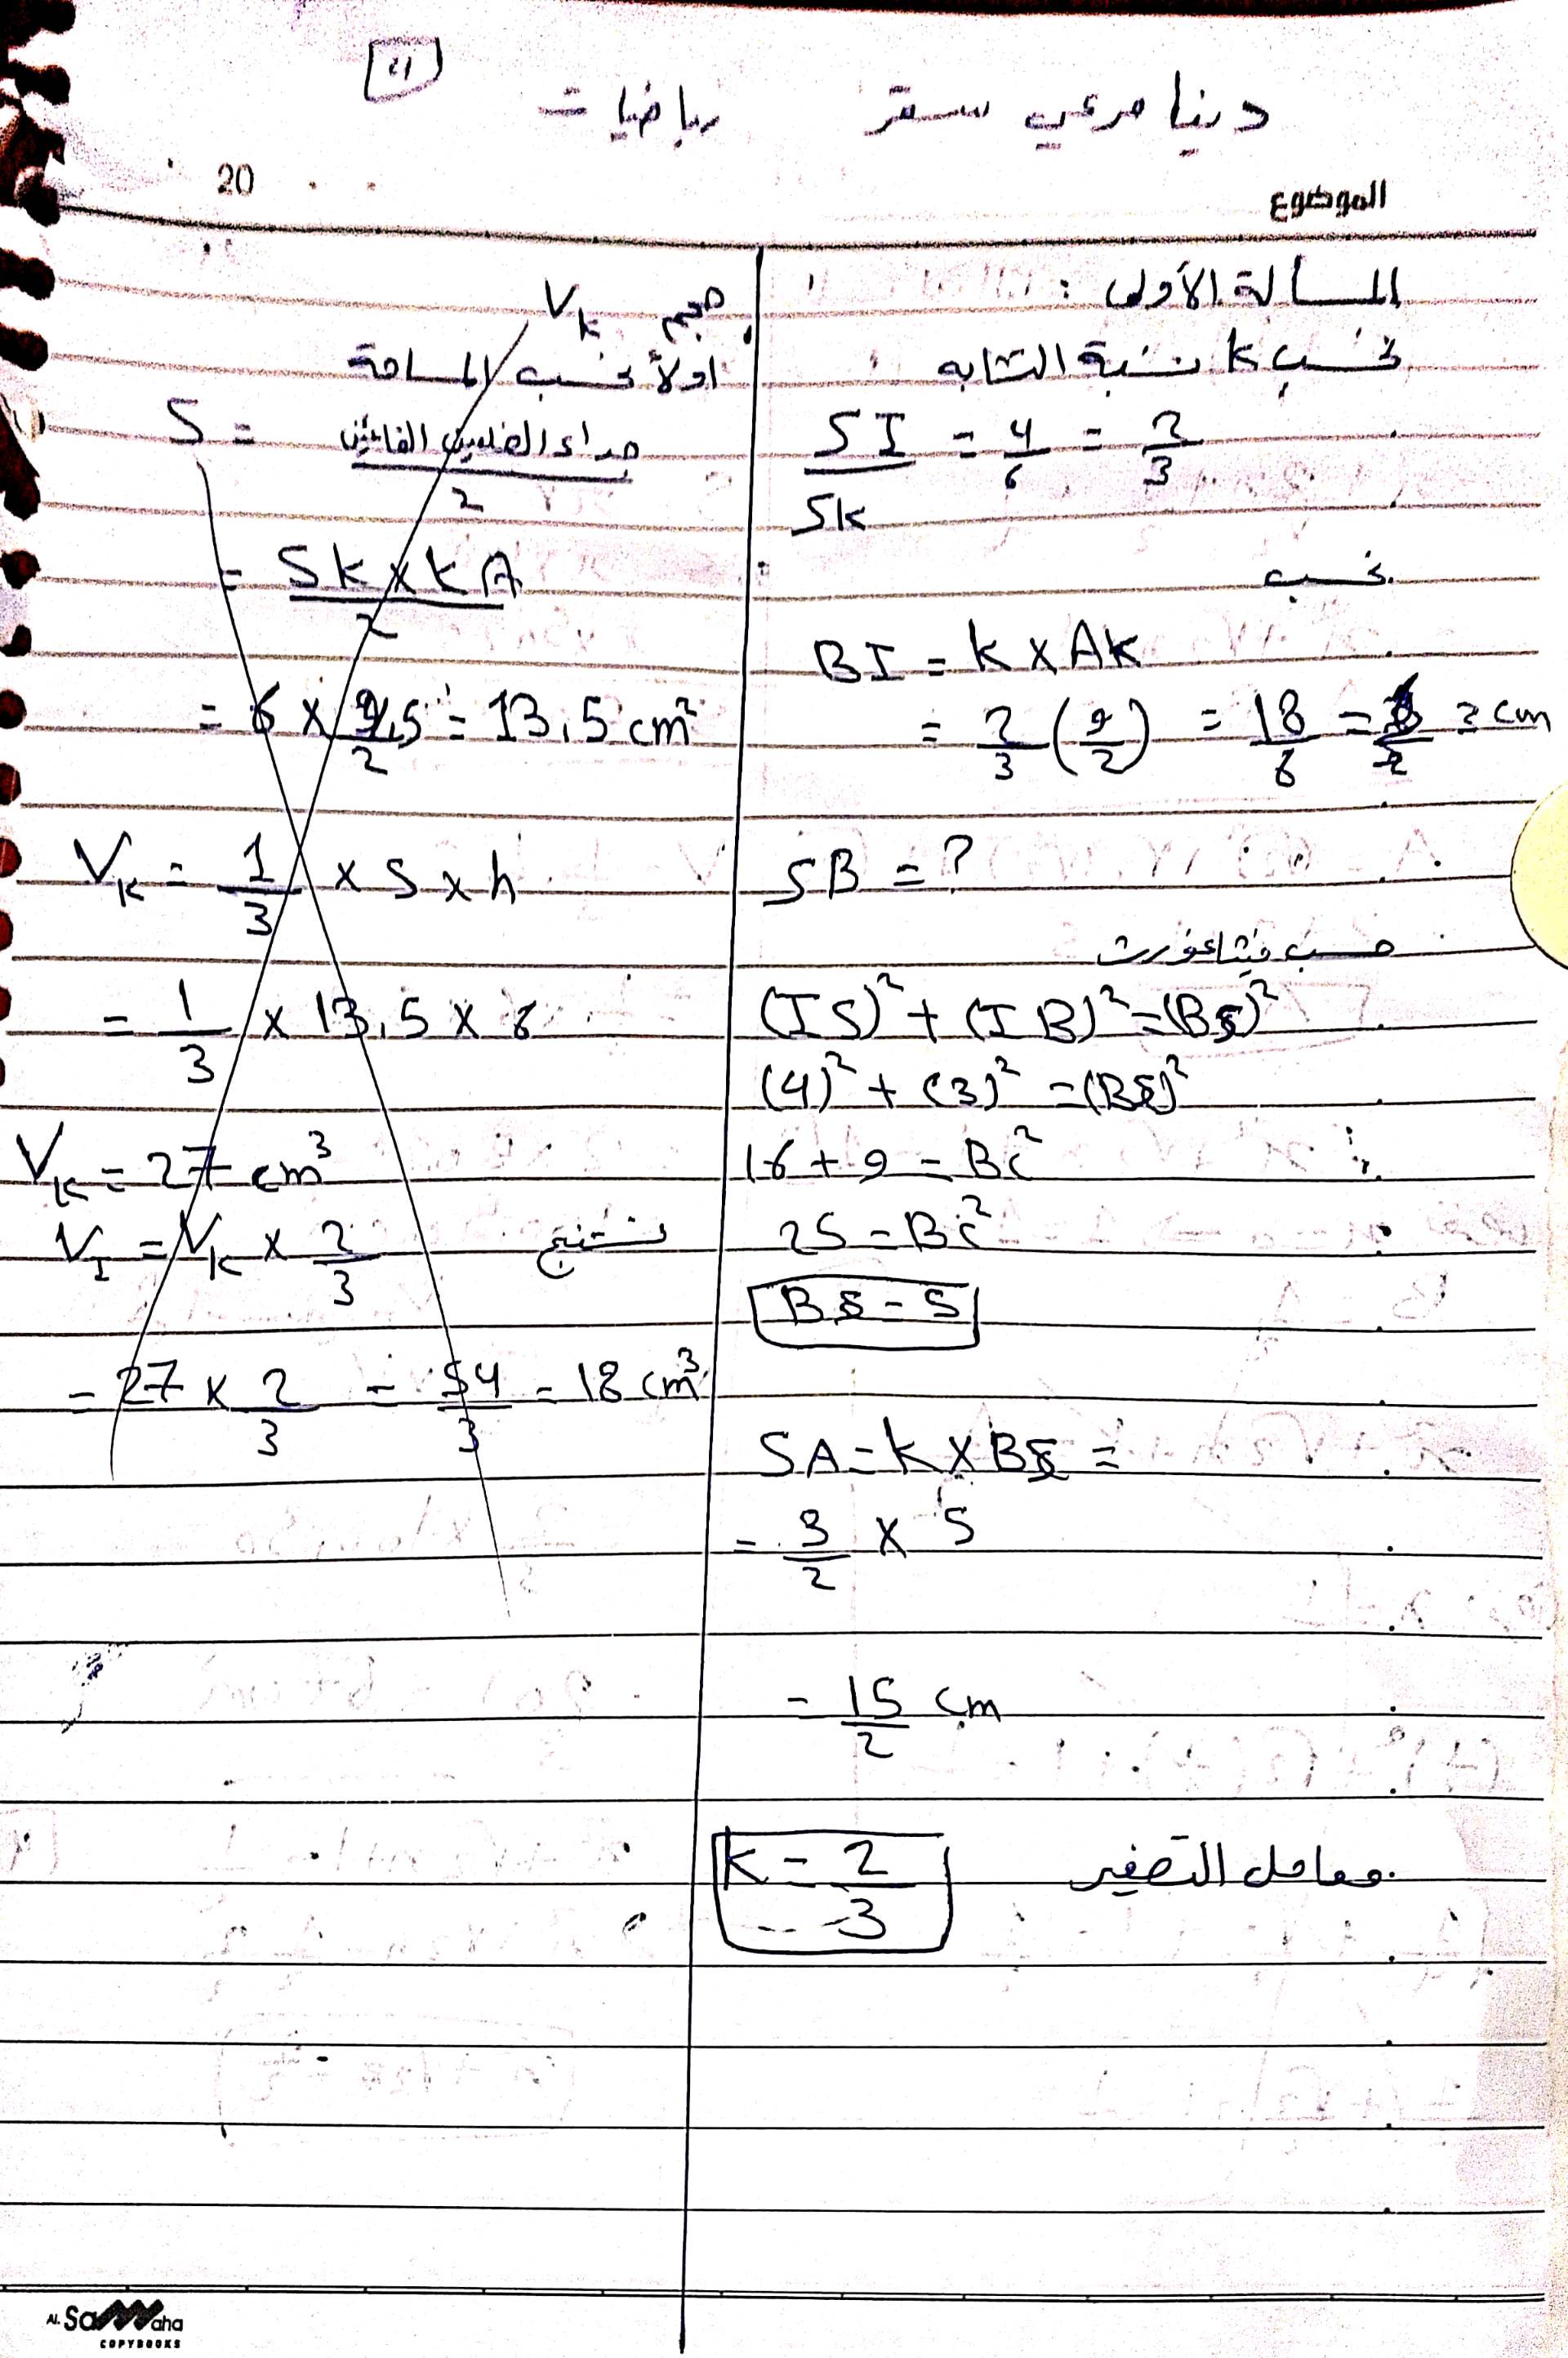 دينا مرعي سقر رياضيات
20
الموضوع
المسألة الأولى:
نحسب k نسبة التشابه
SI / Sk = 4/6 = 2/3
نحسب
BI = k x Ak
= 2/3 (9/2) = 18/6 = 3 cm
SB = ?
حسب فيثاغورث
(IS)² + (IB)² = (BS)²
(4)² + (3)² = (BS)²
16 + 9 = BC²
25 = BC²
BS = 5
SA = k x BS =
= 3/2 x 5
= 15/2 cm
معامل التصغير K = 2/3
حجم Vk
اولاً نحسب المساحة
S = جداء الضلعين القائمتين / 2
= Sk x kA / 2
= 6 x 4,5 / 2 = 13,5 cm²
Vk = 1/3 x S x h
= 1/3 x 13,5 x 6
Vk = 27 cm³
نستنتج VI = Vk x 2/3
= 27 x 2/3 = 54/3 = 18 cm³
AL Samaha
COPYBOOKS